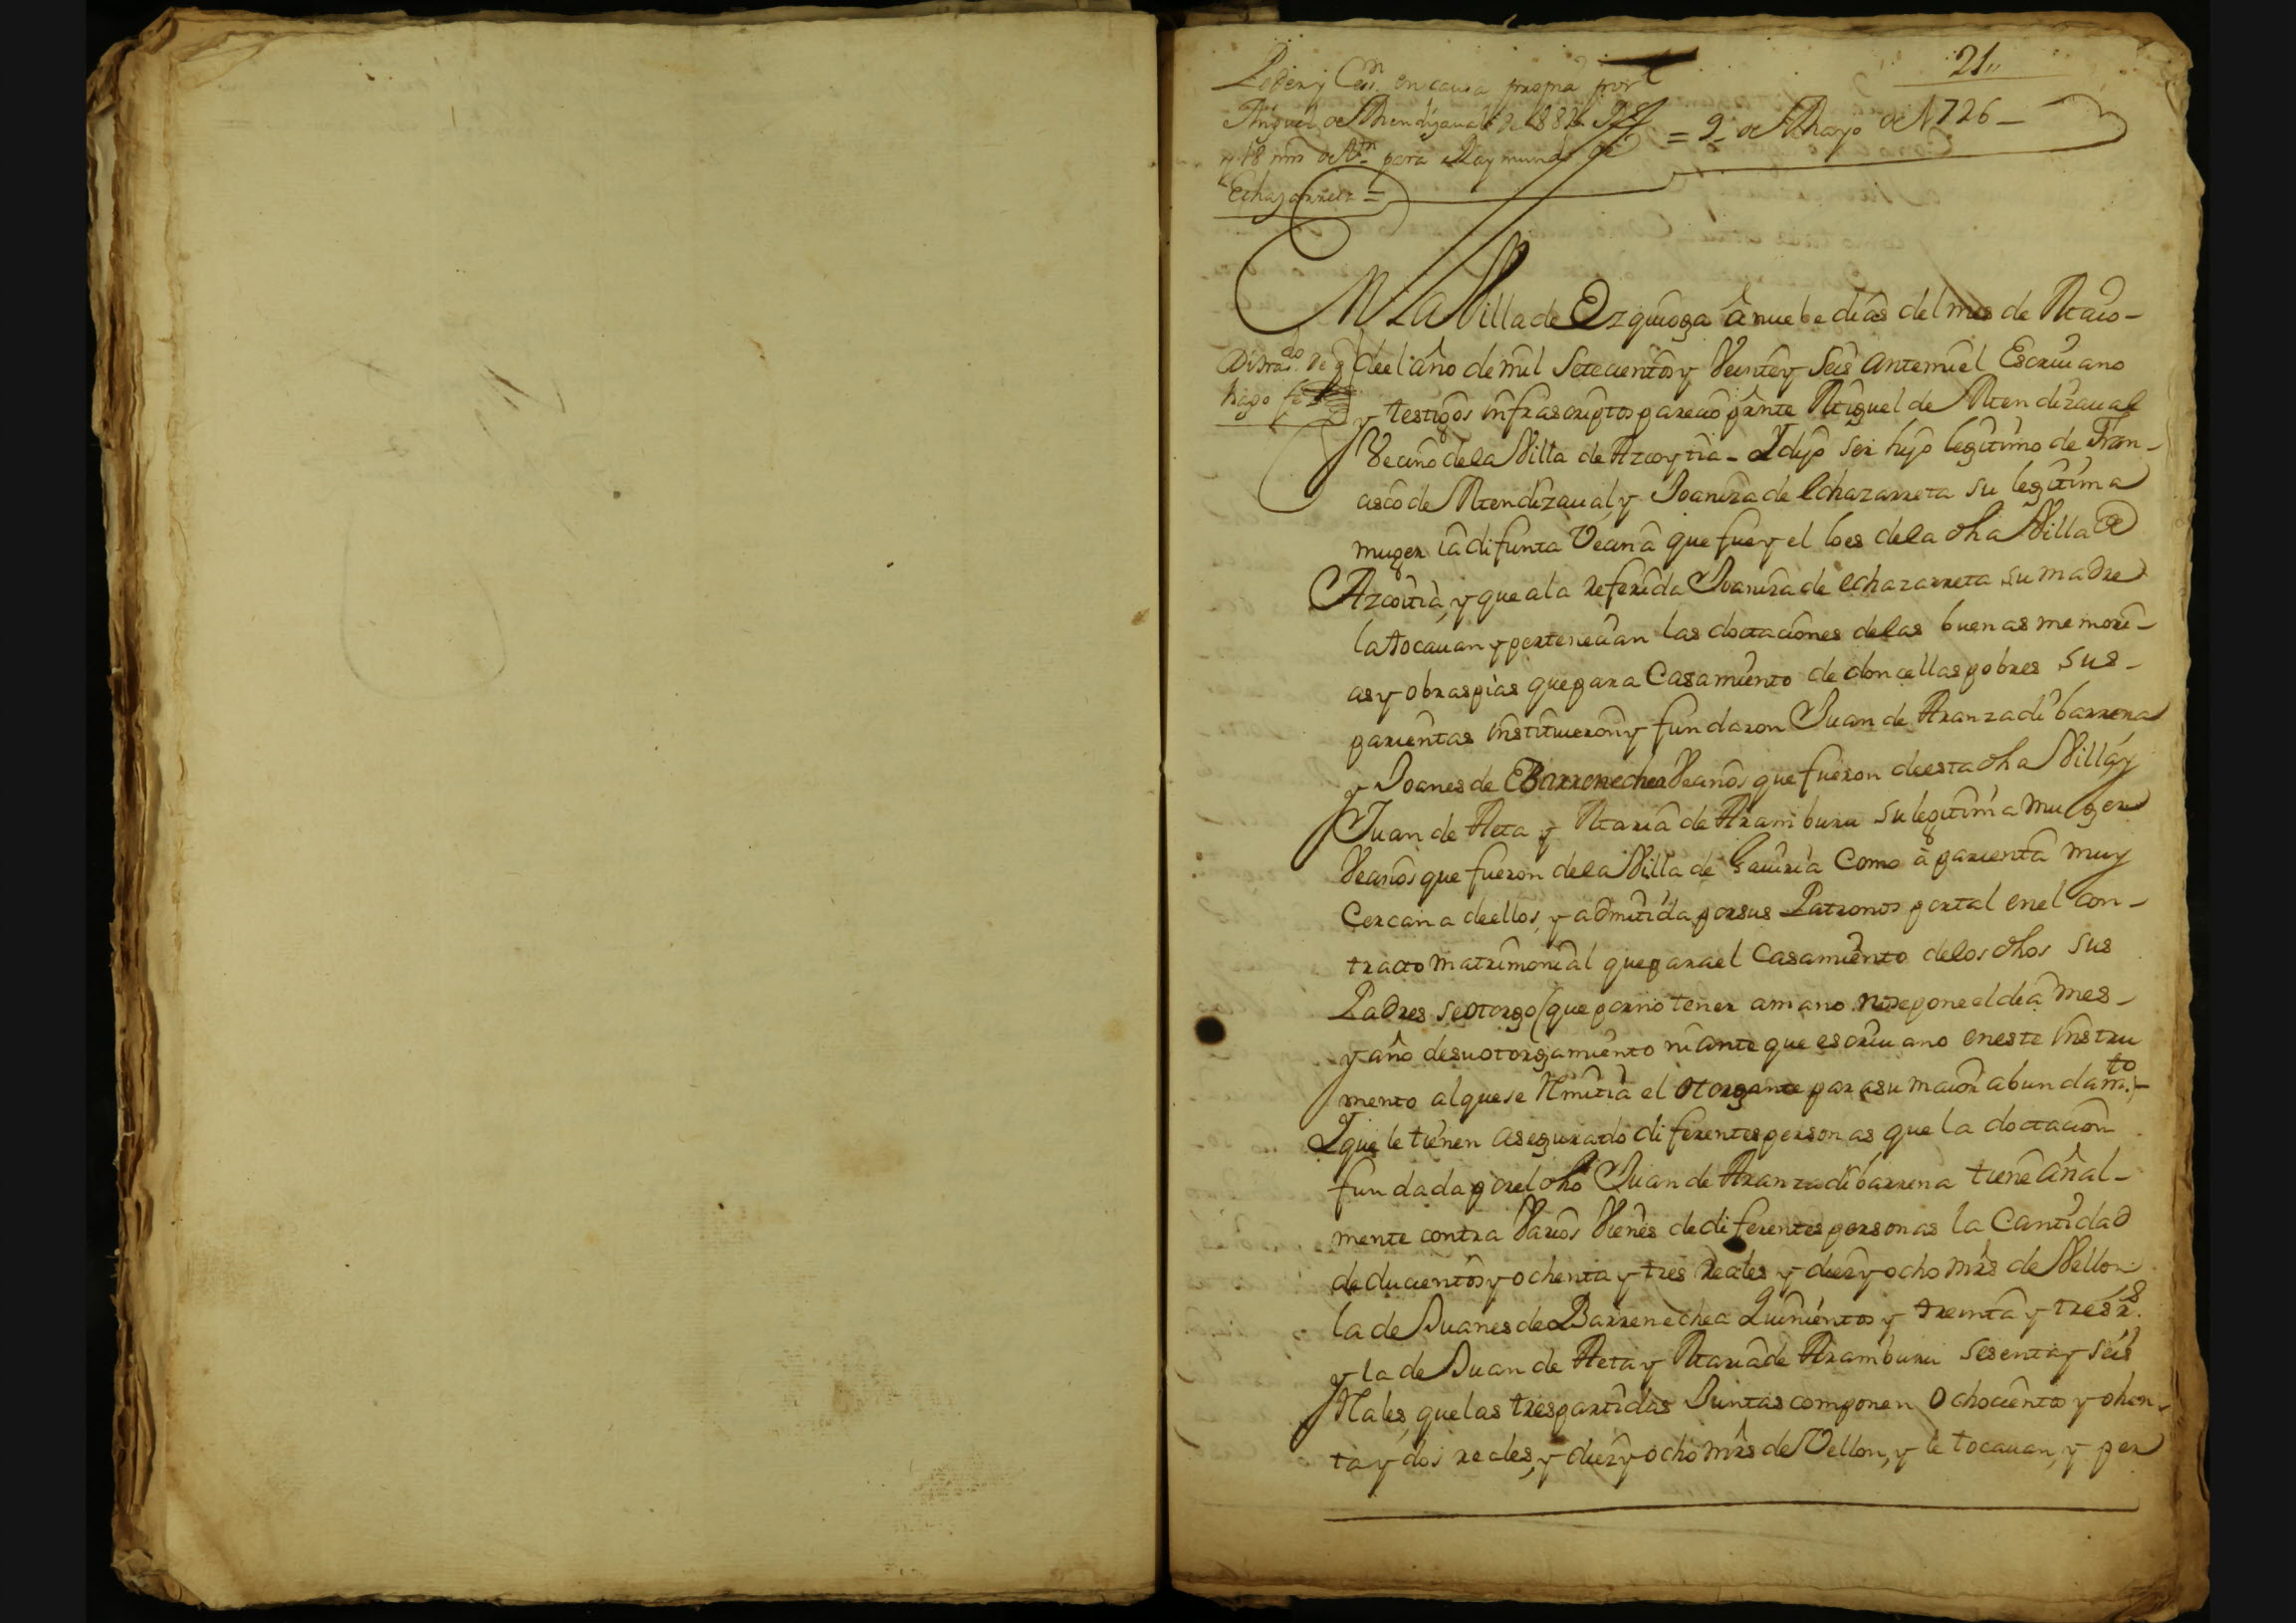 21,,
Poder y Cesn. en causa propria por
Miguel de Mendizaual de 882 Rs
y 18 mrs de Vn. para Raymundo de
Echazarreta =
= 9 de Mayo de 1726 –
En La Villa de Ezquioga â nuebe dias del mes de Maio –
de el año de mil Setecientos y Veinte y Seis ante mi el Escriuano
y testigos infrascriptos parecio preste Miguel de Mendizaual
Vecino de la Villa de Azcoytia – Y dijo ser hijo legitimo de Fran –
cisco de Mendizaual, y Joaniza de Echazarreta su legitima
muger ia difunta Vecina que fue y el lo es de la dha Villa de
Azcoitia, y que a la referida Juaniza de echazarreta su madre
la tocauan y pertenecian las doctaciones de las buenas memori –
as y obras pias que para Casamiento de doncellas pobres sus –
parientas instituieron y fundaron Juan de Aranzadibarrena
y Joanes de Barrenechea Vecinos que fueron de esta dha Villa, y
Juan de Aeta y Maria de Aramburu su legitima muger
Vecinos que fueron de la Villa de Gauiria Como â parienta muy
Cercana de ellos, y admitida por sus Patronos por tal en el Con –
tracto matrimonial que para el Casamiento de los dhos sus
Padres se otorgo (que por no tener a mano no se pone el dia mes –
y año de su otorgamiento ni ante que escriuano en este instru
mento al que se Remitia el otorgante para su maior abundamto.) –
Y que le tienen asegurado diferentes personas que la doctacion
fundada por el dho Juan de Aranzadibarrena tiene añal –
mente contra Varios Vienes de diferentes personas la Cantidad
de ducientos y ochenta y tres Reales y diez y ocho mrs de Vellon
la de Juanes de Barrenechea Quinientos y treinta y tres rs.
y la de Juan de Aeta y Maria de Aramburu Sesenta y Seis
Reales, que las tres partidas Juntas componen Ochocientos y ohen –
ta y dos reales, y diez y ocho mrs de Vellon, y le tocauan, y per
Di trasdo. de q
hago fe